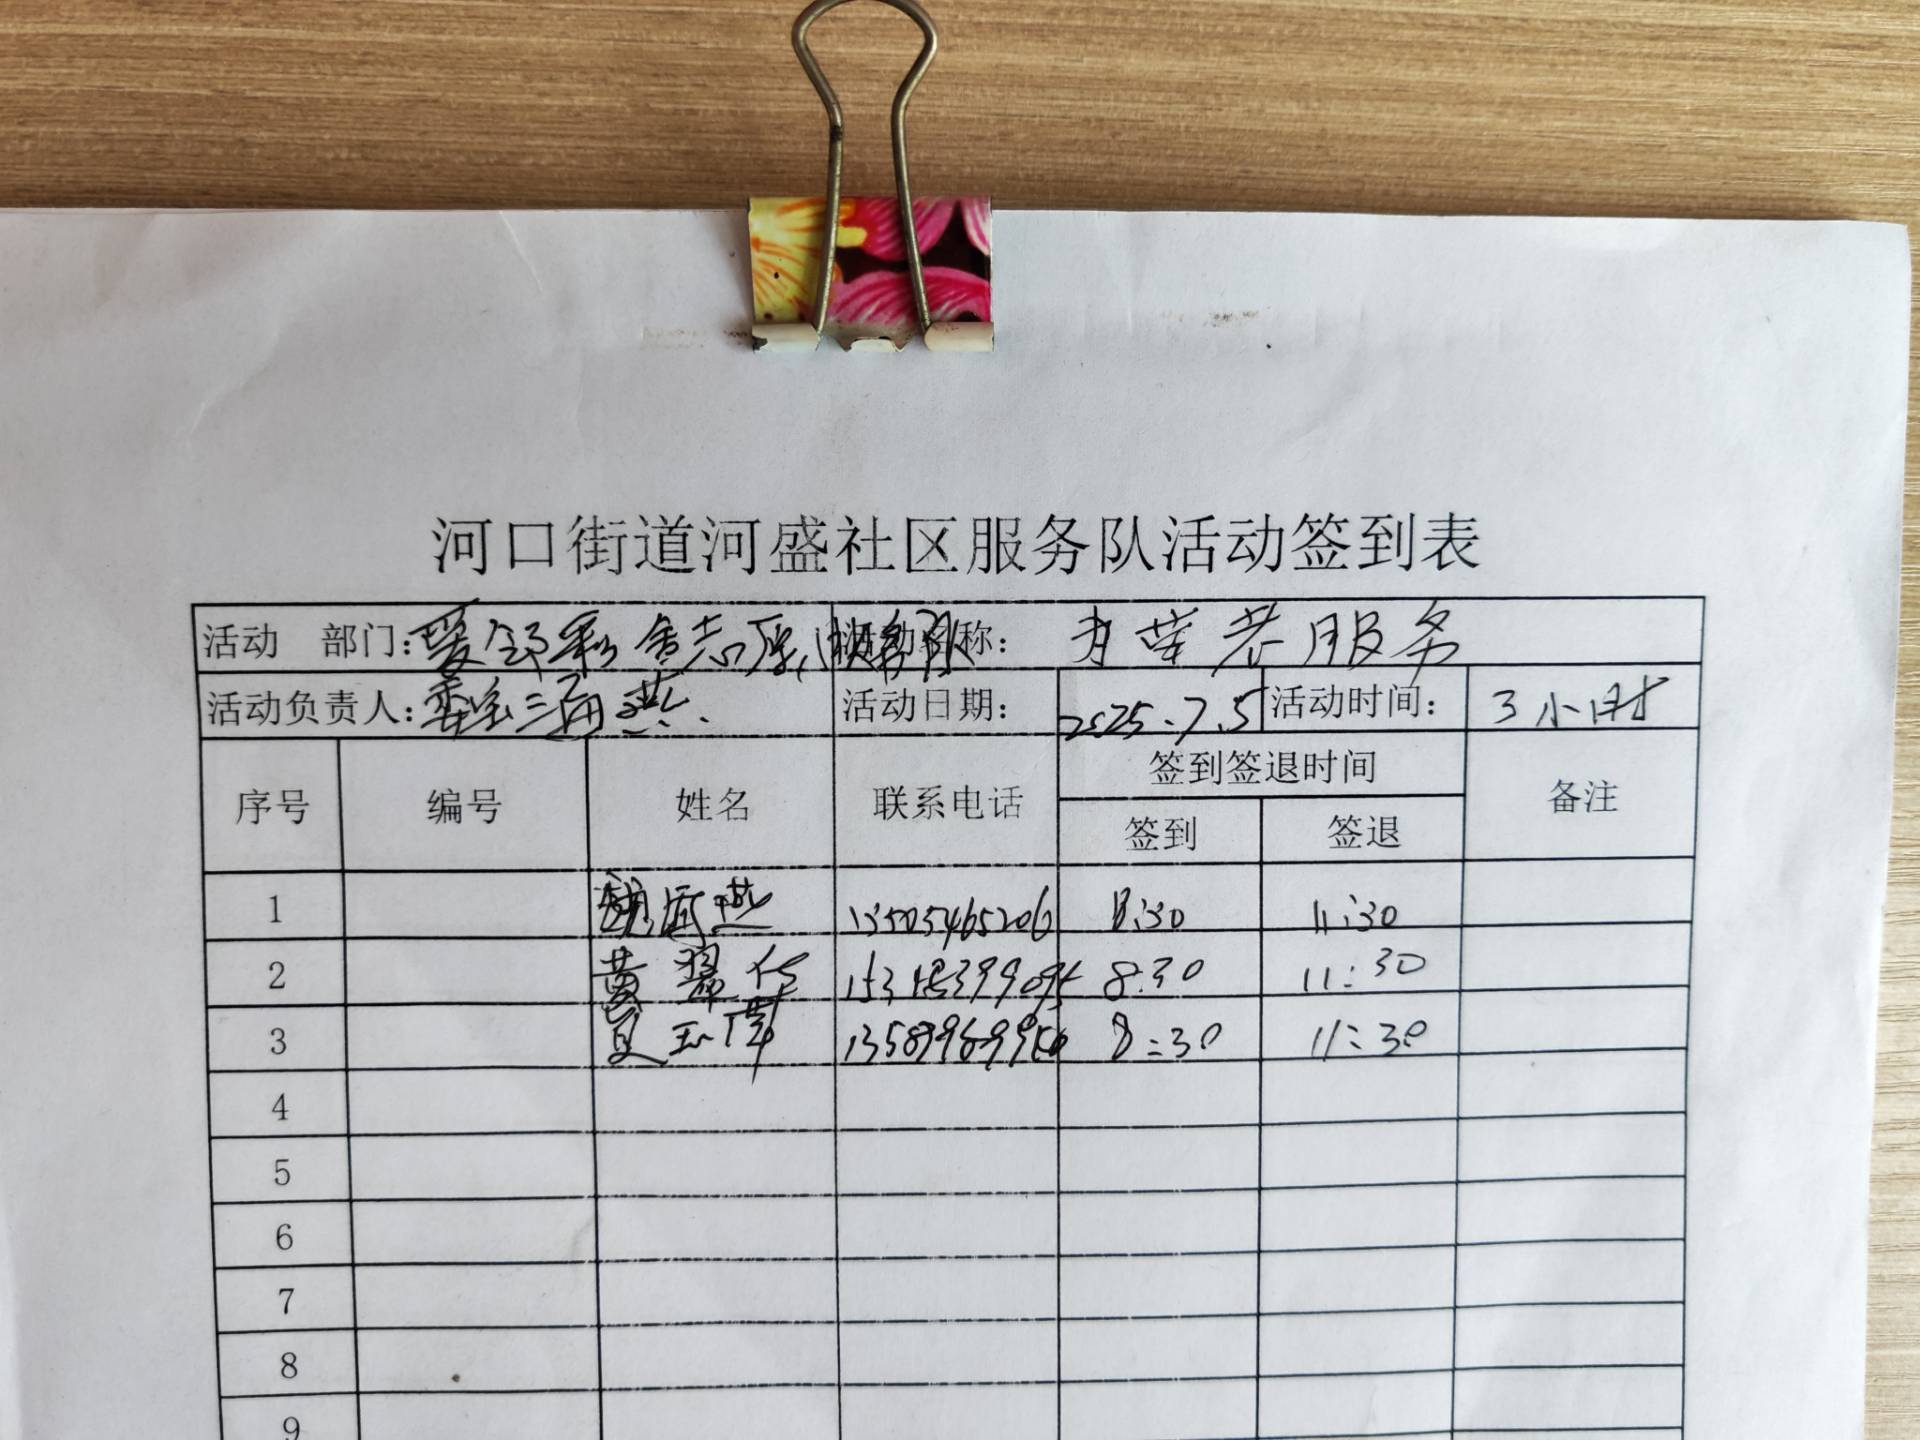 河口街道河盛社区服务队活动签到表
活动 部门: 志愿服务队 活动名称: 为老服务
活动负责人: 活动日期: 2025.7.5 活动时间: 3小时
序号 编号 姓名 联系电话 签到签退时间 备注
签到 签退
1 13505465206 8:30 11:30
2 黄翠华 8:30 11:30
3 8:30 11:30
4
5
6
7
8
9